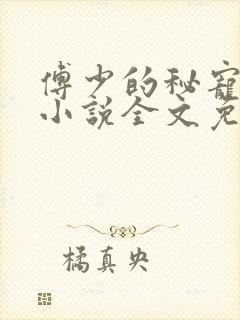 傅少的秘寵
小說全文免
橘真央